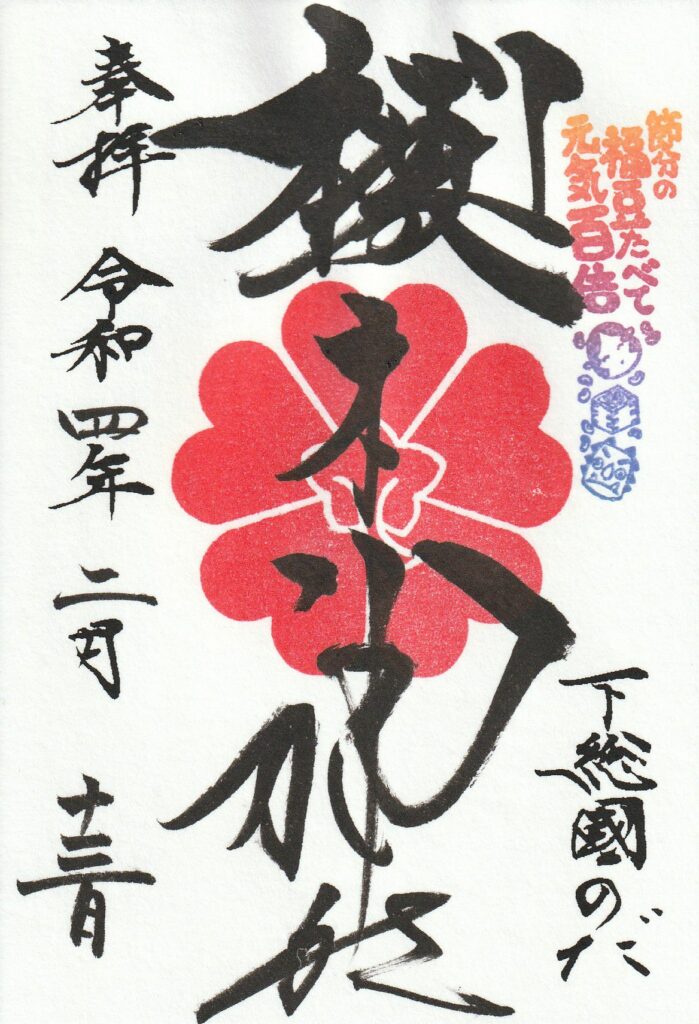 節分の
福豆たべて
元気百倍
下総國のだ
櫻木神社
奉拝 令和四年 二月 十三日